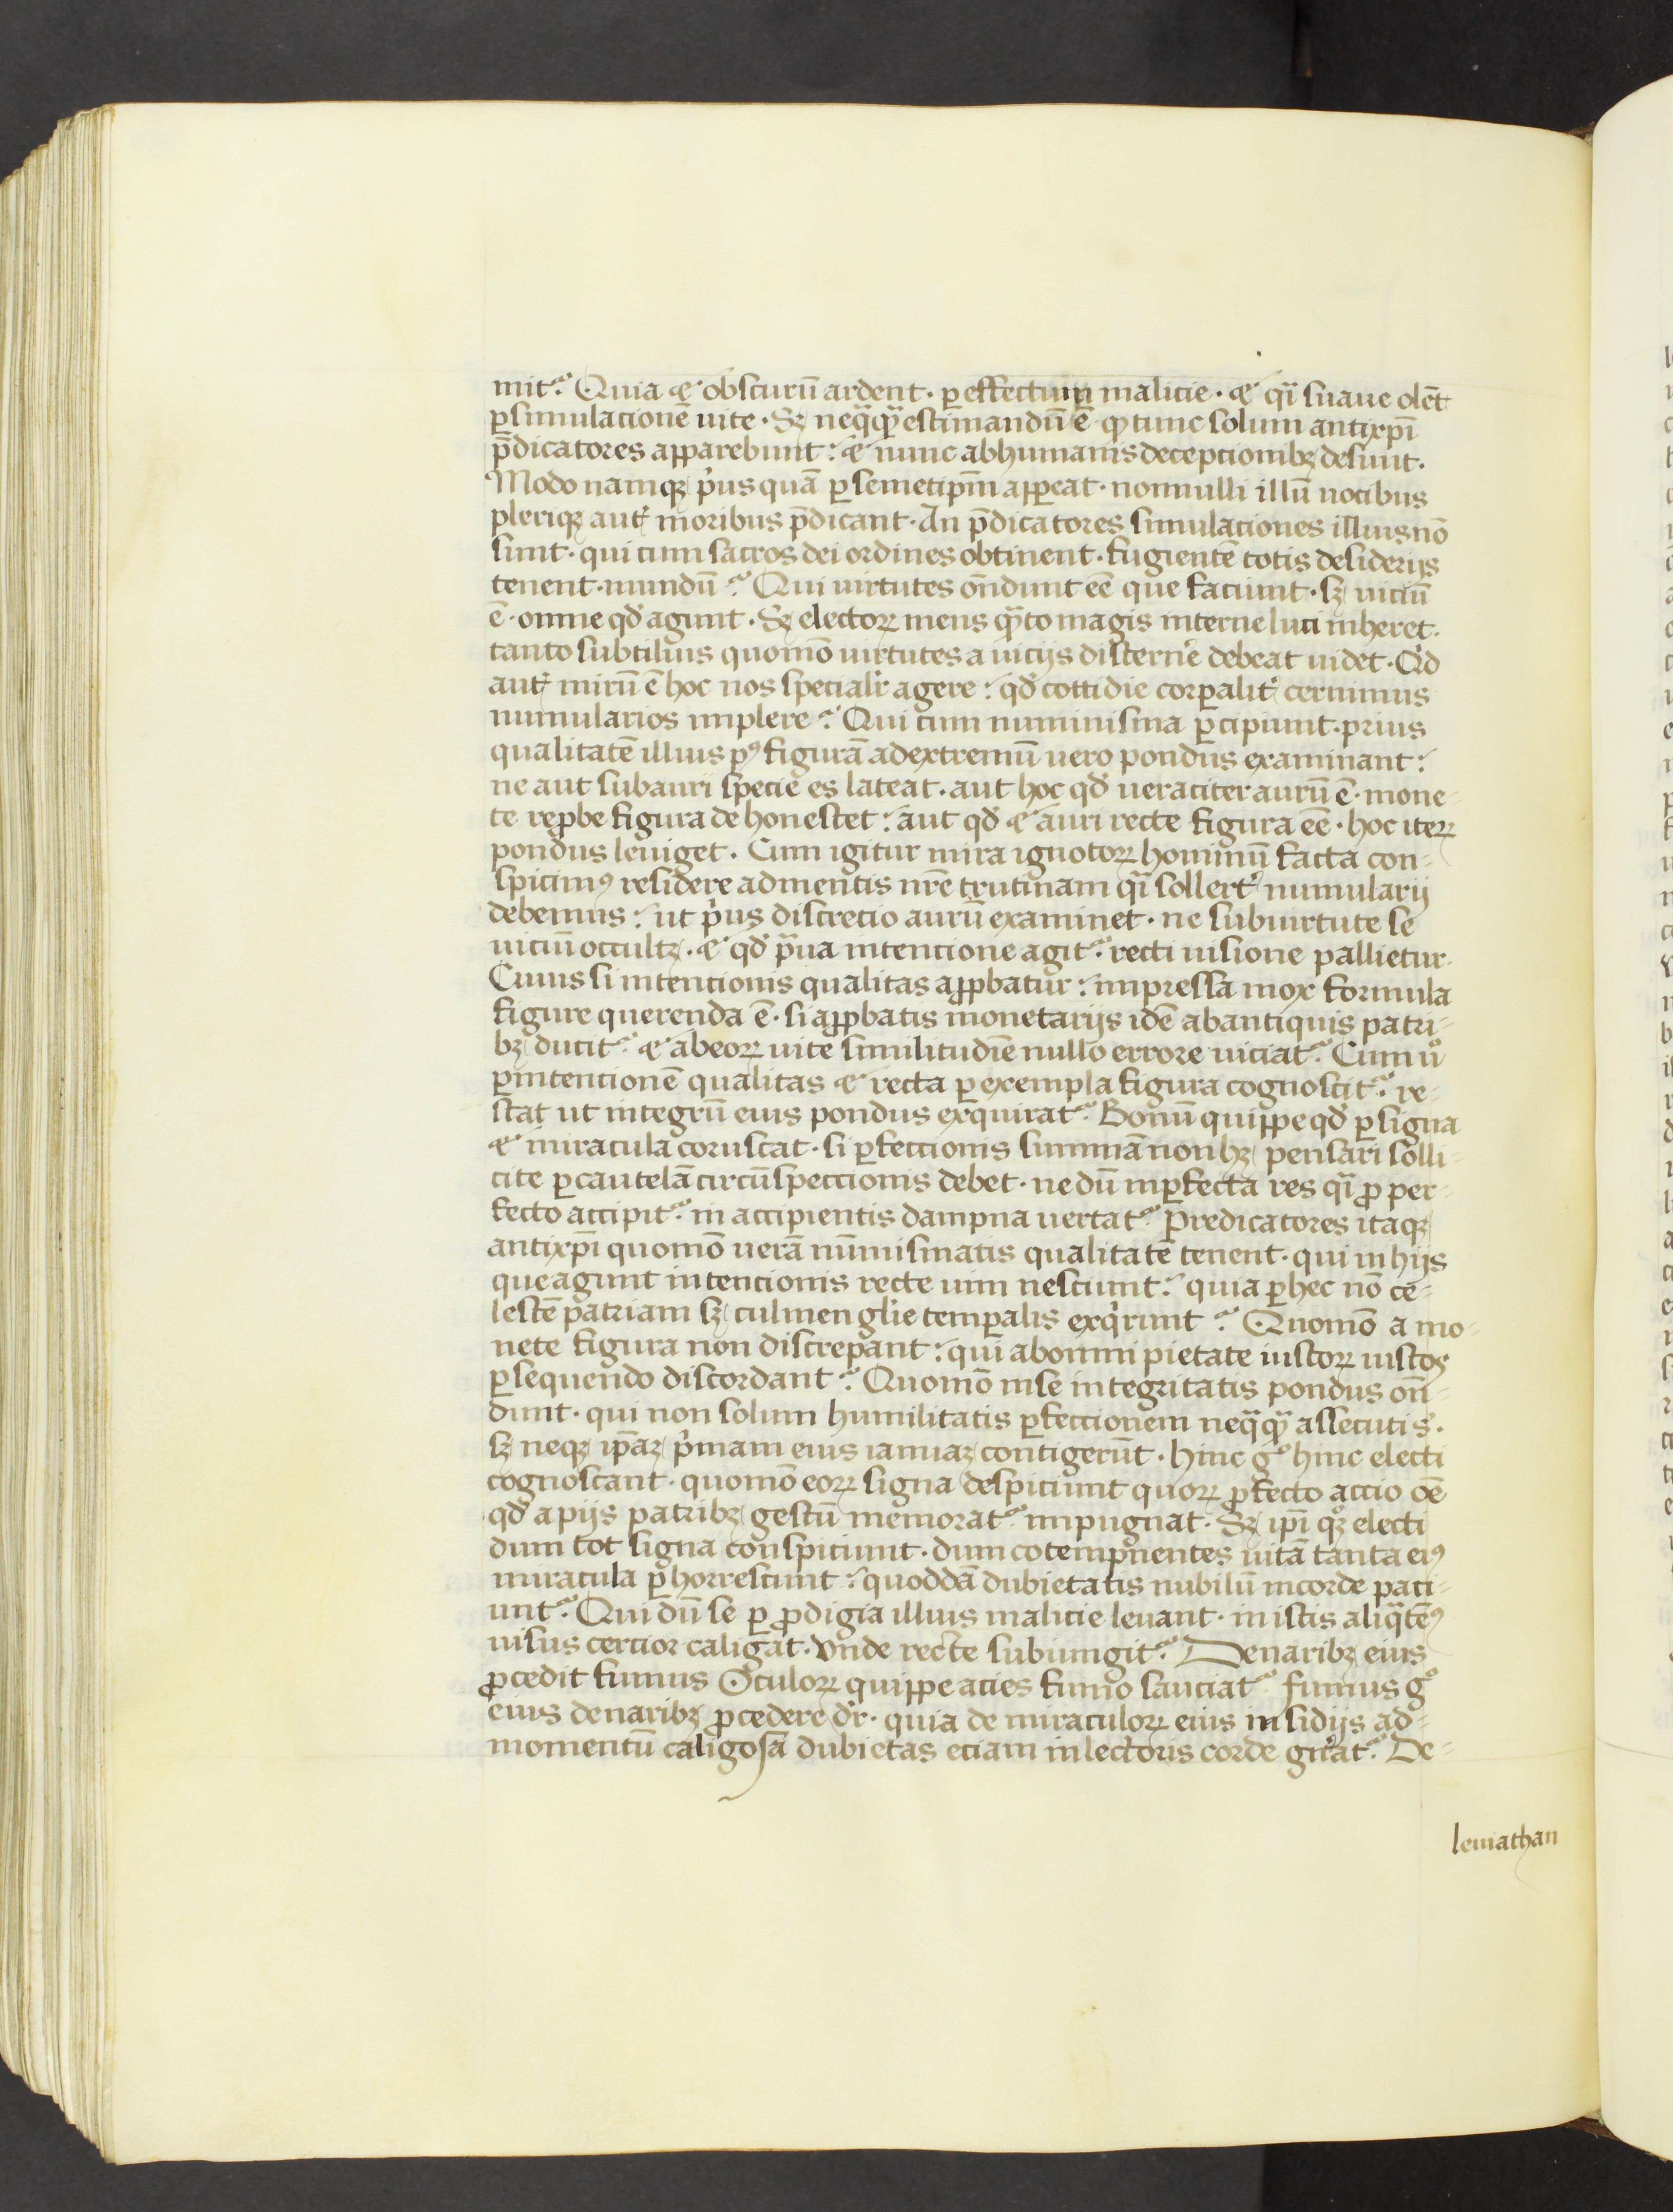 mit᷑. Quia & obscurū ardent. ꝑ effectum malicie. & qͣi suaue olēt
ꝑ simulacionē uite. Sꝫ neqͣqͣ estimandū ē ꝙ tunc solum antixp̄i
p̄dicatores apparebunt: & nunc ab humanis decepcionibꝫ desunt.
Modo namqꝫ pͥus quā ꝑ semetip̄m appeat. nonnulli illū uocibus
pleriqꝫ aut̄ moribus p̄dicant. An p̄dicatores simulaciones illius nō
sunt. qui cum sacros dei ordines obtinent. fugientē totis desiderijs
tenent mundū? Qui uirtutes on̄dunt eē que faciunt. sꝫ uiciū
ē. omne qd̄ agunt. Sꝫ electoꝝ mens qͣnto magis interne luci inheret.
tanto subtilius quomō uirtutes a uicijs discern̄e debeat uidet. Qͥd
aut̄ mirū ē hoc nos specialr̄ agere: qd̄ cottidie corꝑalit̄ cernimus
numularios implere? Qui cum numinisma ꝑcipiunt. prius
qualitatē illius pꝰ figurā ad extremū uero pondus examinant:
ne aut sub auri specie es lateat. aut hoc qd̄ ueraciter aurū ē. mone-
te reꝓbe figura de honestet: aut qd̄ & auri recte figura eē. hoc iteꝝ
pondus leuiget. Cum igitur mira ignotoꝝ hominū facta con-
spicimꝰ residere ad mentis nr̄e trutinam qͣi sollert̄ numularij
debemus: ut pͥus discrecio aurū examinet. ne sub uirtute se
uiciū occultꝫ. & qd̄ pͣua intencione agit᷑. recti uisione pallietur.
Cuius si intentionis qualitas apꝓbatur: impressa mox formula
figure querenda ē. si apꝓbatis monetarijs idē ab antiquis patri-
bꝫ ducit᷑. & ab eoꝝ uite similitudīe nullo errore uiciat᷑. Cum uͦ
ꝑ intencionē qualitas & recta ꝑ exempla figura cognoscit᷑. re-
stat ut integrū eius pondus exquirat᷑. Bonū quippe qd̄ ꝑ signa
& miracula coruscat. si ꝑfeccionis summā non hꝫ pensari solli-
cite ꝑ cautelā circūspeccionis debet. ne dū inꝑfecta res qͣi ꝓ per-
fecto accipit᷑. in accipientis dampna uertat᷑. Predicatores itaqꝫ
antixp̄i quomō uerā nūmismatis qualitatē tenent. qui in hijs
que agunt intencionis recte uim nesciunt: quia ꝑ hec nō ce-
lestē patriam sꝫ culmen glīe temꝑalis exqͥrunt? Quomō a mo-
nete figura non discrepant: qui ab omni pietate iustoꝝ iustos
ꝑsequendo discordant? Quomō in se integritatis pondus on̄-
dunt. qui non solum humilitatis ꝑfeccionem neqͣqͣ assecuti s̄.
sꝫ neqꝫ ip̄aꝫ pͥmam eius ianuaꝫ contigerūt. Hinc gͦ hinc electi
cognoscant. quomō eoꝝ signa despiciunt quoꝝ ꝓfecto accio oē
qd̄ a pijs patribꝫ gestū memorat᷑ impugnat. Sꝫ ip̄i qͦꝫ electi
dum tot signa conspiciunt. dum cōtempnentes uitā tanta eiꝰ
miracula ꝑhorrescunt: quoddā dubietatis nubilū in corde paci-
unt᷑. Qui dū se ꝑ ꝓdigia illius malicie leuant. in istis aliqͣtēꝰ
uisus cercior caligat. Vnde recte subiungit᷑. De naribꝫ eius
ꝓcedit fumus Oculoꝝ quippe acies fumo sauciat᷑. fumus gͦ
eius de naribꝫ ꝓcedere dr̄. quia de miraculoꝝ eius insidijs ad-
momentū caligosā dubietas eciam in lectoris corde gn̄at᷑. De-
leuiathan